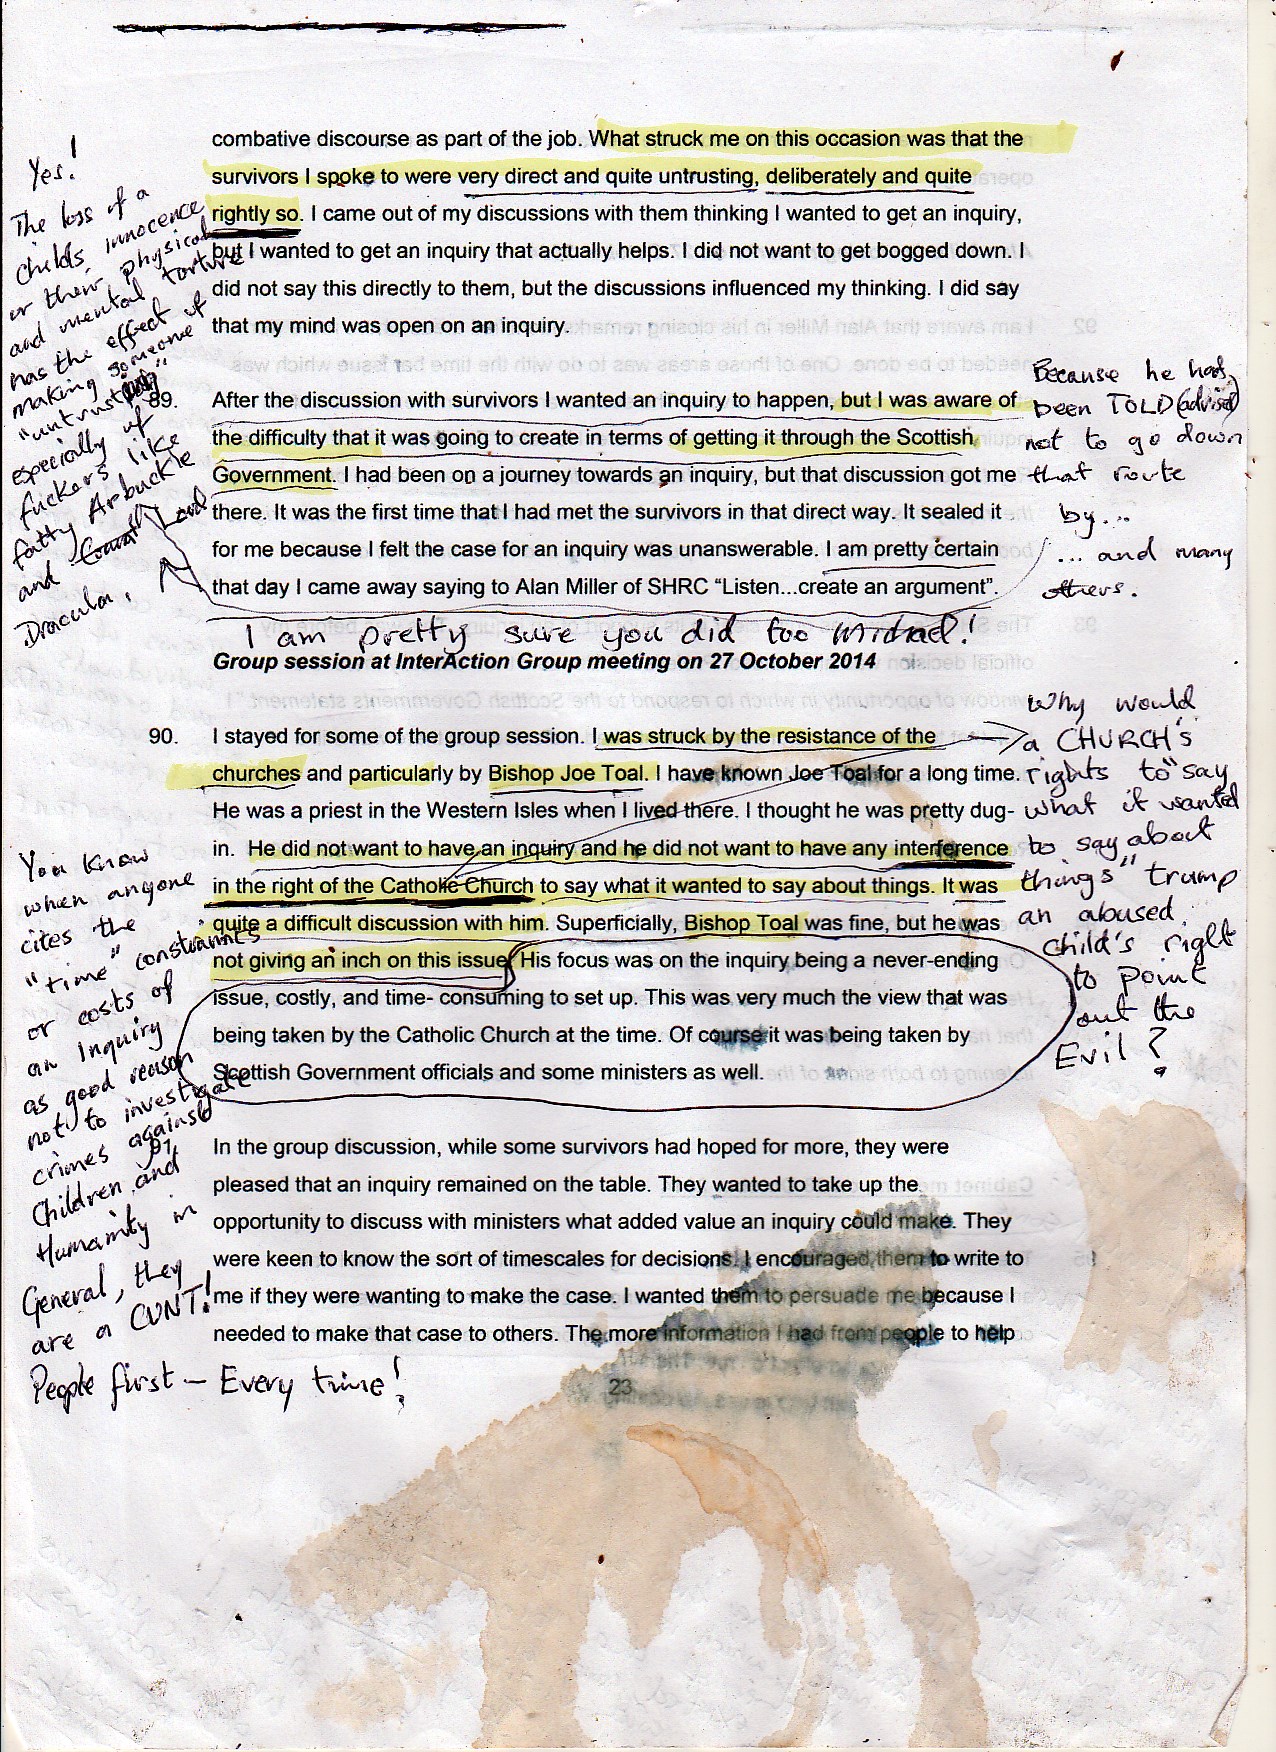 combative discourse as part of the job. What struck me on this occasion was that the
survivors I spoke to were very direct and quite untrusting, deliberately and quite
rightly so. I came out of my discussions with them thinking I wanted to get an inquiry,
but I wanted to get an inquiry that actually helps. I did not want to get bogged down. I
did not say this directly to them, but the discussions influenced my thinking. I did say
that my mind was open on an inquiry.
Yes!
The loss of a
childs innocence
or their physical
and mental torture
has the effect of
making someone
"untrusting"
especially of
fuckers like
fatty Arbuckle
and Lord
Dracula.
89. After the discussion with survivors I wanted an inquiry to happen, but I was aware of
the difficulty that it was going to create in terms of getting it through the Scottish
Government. I had been on a journey towards an inquiry, but that discussion got me
there. It was the first time that I had met the survivors in that direct way. It sealed it
for me because I felt the case for an inquiry was unanswerable. I am pretty certain
that day I came away saying to Alan Miller of SHRC “Listen...create an argument”.
Because he had
been TOLD (advised)
not to go down
that route
by...
... and many
others.
I am pretty sure you did too Michael!
Group session at InterAction Group meeting on 27 October 2014
90. I stayed for some of the group session. I was struck by the resistance of the
churches and particularly by Bishop Joe Toal. I have known Joe Toal for a long time.
He was a priest in the Western Isles when I lived there. I thought he was pretty dug-
in. He did not want to have an inquiry and he did not want to have any interference
in the right of the Catholic Church to say what it wanted to say about things. It was
quite a difficult discussion with him. Superficially, Bishop Toal was fine, but he was
not giving an inch on this issue. His focus was on the inquiry being a never-ending
issue, costly, and time- consuming to set up. This was very much the view that was
being taken by the Catholic Church at the time. Of course it was being taken by
Scottish Government officials and some ministers as well.
Why would
a CHURCH's
rights to "say
what it wanted
to say about
things" trump
an abused
child's right
to point
out the
Evil?
You know
when anyone
cites the
"time" constraints
or costs of
an Inquiry
as good reason
not to investigate
crimes against
Children and
Humanity in
General, they
are a CUNT!
People first – Every time!
91. In the group discussion, while some survivors had hoped for more, they were
pleased that an inquiry remained on the table. They wanted to take up the
opportunity to discuss with ministers what added value an inquiry could make. They
were keen to know the sort of timescales for decisions. I encouraged them to write to
me if they were wanting to make the case. I wanted them to persuade me because I
needed to make that case to others. The more information I had from people to help
23